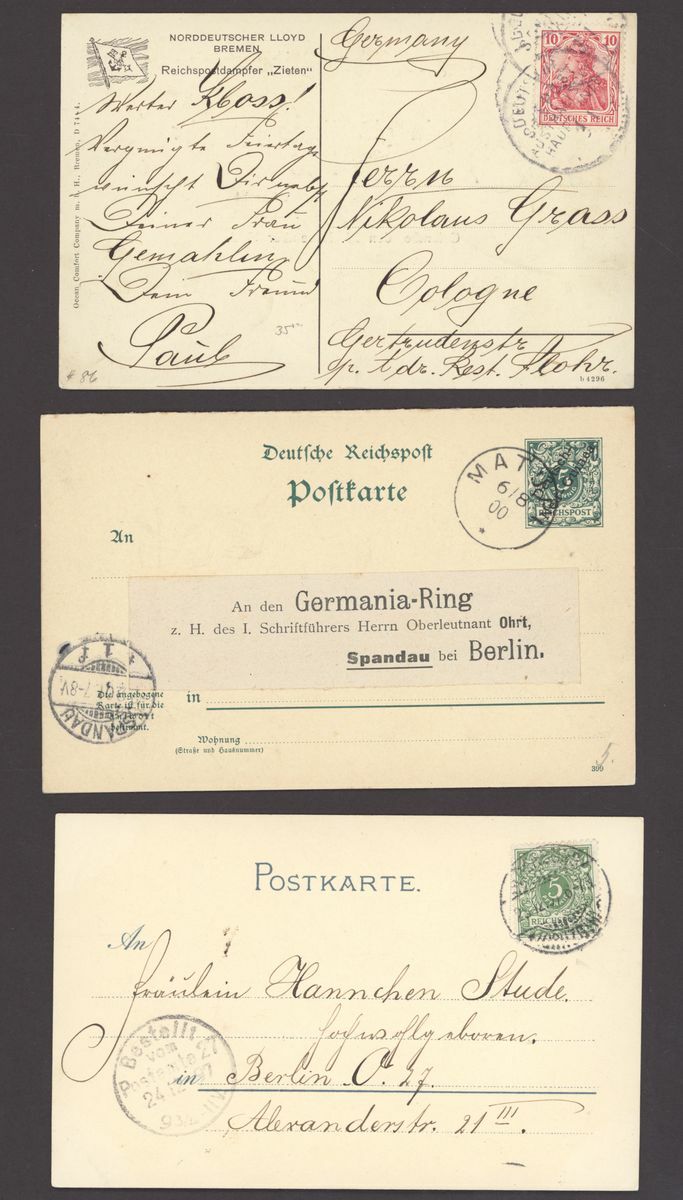 NORDDEUTSCHER LLOYD
BREMEN
Reichspostdampfer „Zieten“
Germany
10 10
DEUTSCHES REICH
Werter Kloss!
Vergnügte Feiertage
wünscht Dir nebst
Deiner Frau
Gemahlin
Dein Freund
Paul
Ocean Comfort Company m. b. H., Bremen, D 74
Herrn
Nikolaus Grass
Cologne
Gertrudenstr
p. Adr. Rest. Flohr.
# 86
b 4296
Deutsche Reichspost
Postkarte
MAT
6/8
00
5
REICHSPOST
An
An den Germania-Ring
z. H. des I. Schriftführers Herrn Oberleutnant Ohrt,
Spandau bei Berlin.
SPANDAU
7-8V
Die angebogene
Karte ist für die
Antwort
bestimmt.
in
Wohnung
(Straße und Hausnummer)
399
5.
POSTKARTE.
5
REICHSPOST
An
Fräulein Hannchen Stude.
Hochwohlgeboren.
in Berlin O. 27.
Alexanderstr. 21 III
Bestellt
vom
Postamte 27
24 12 97